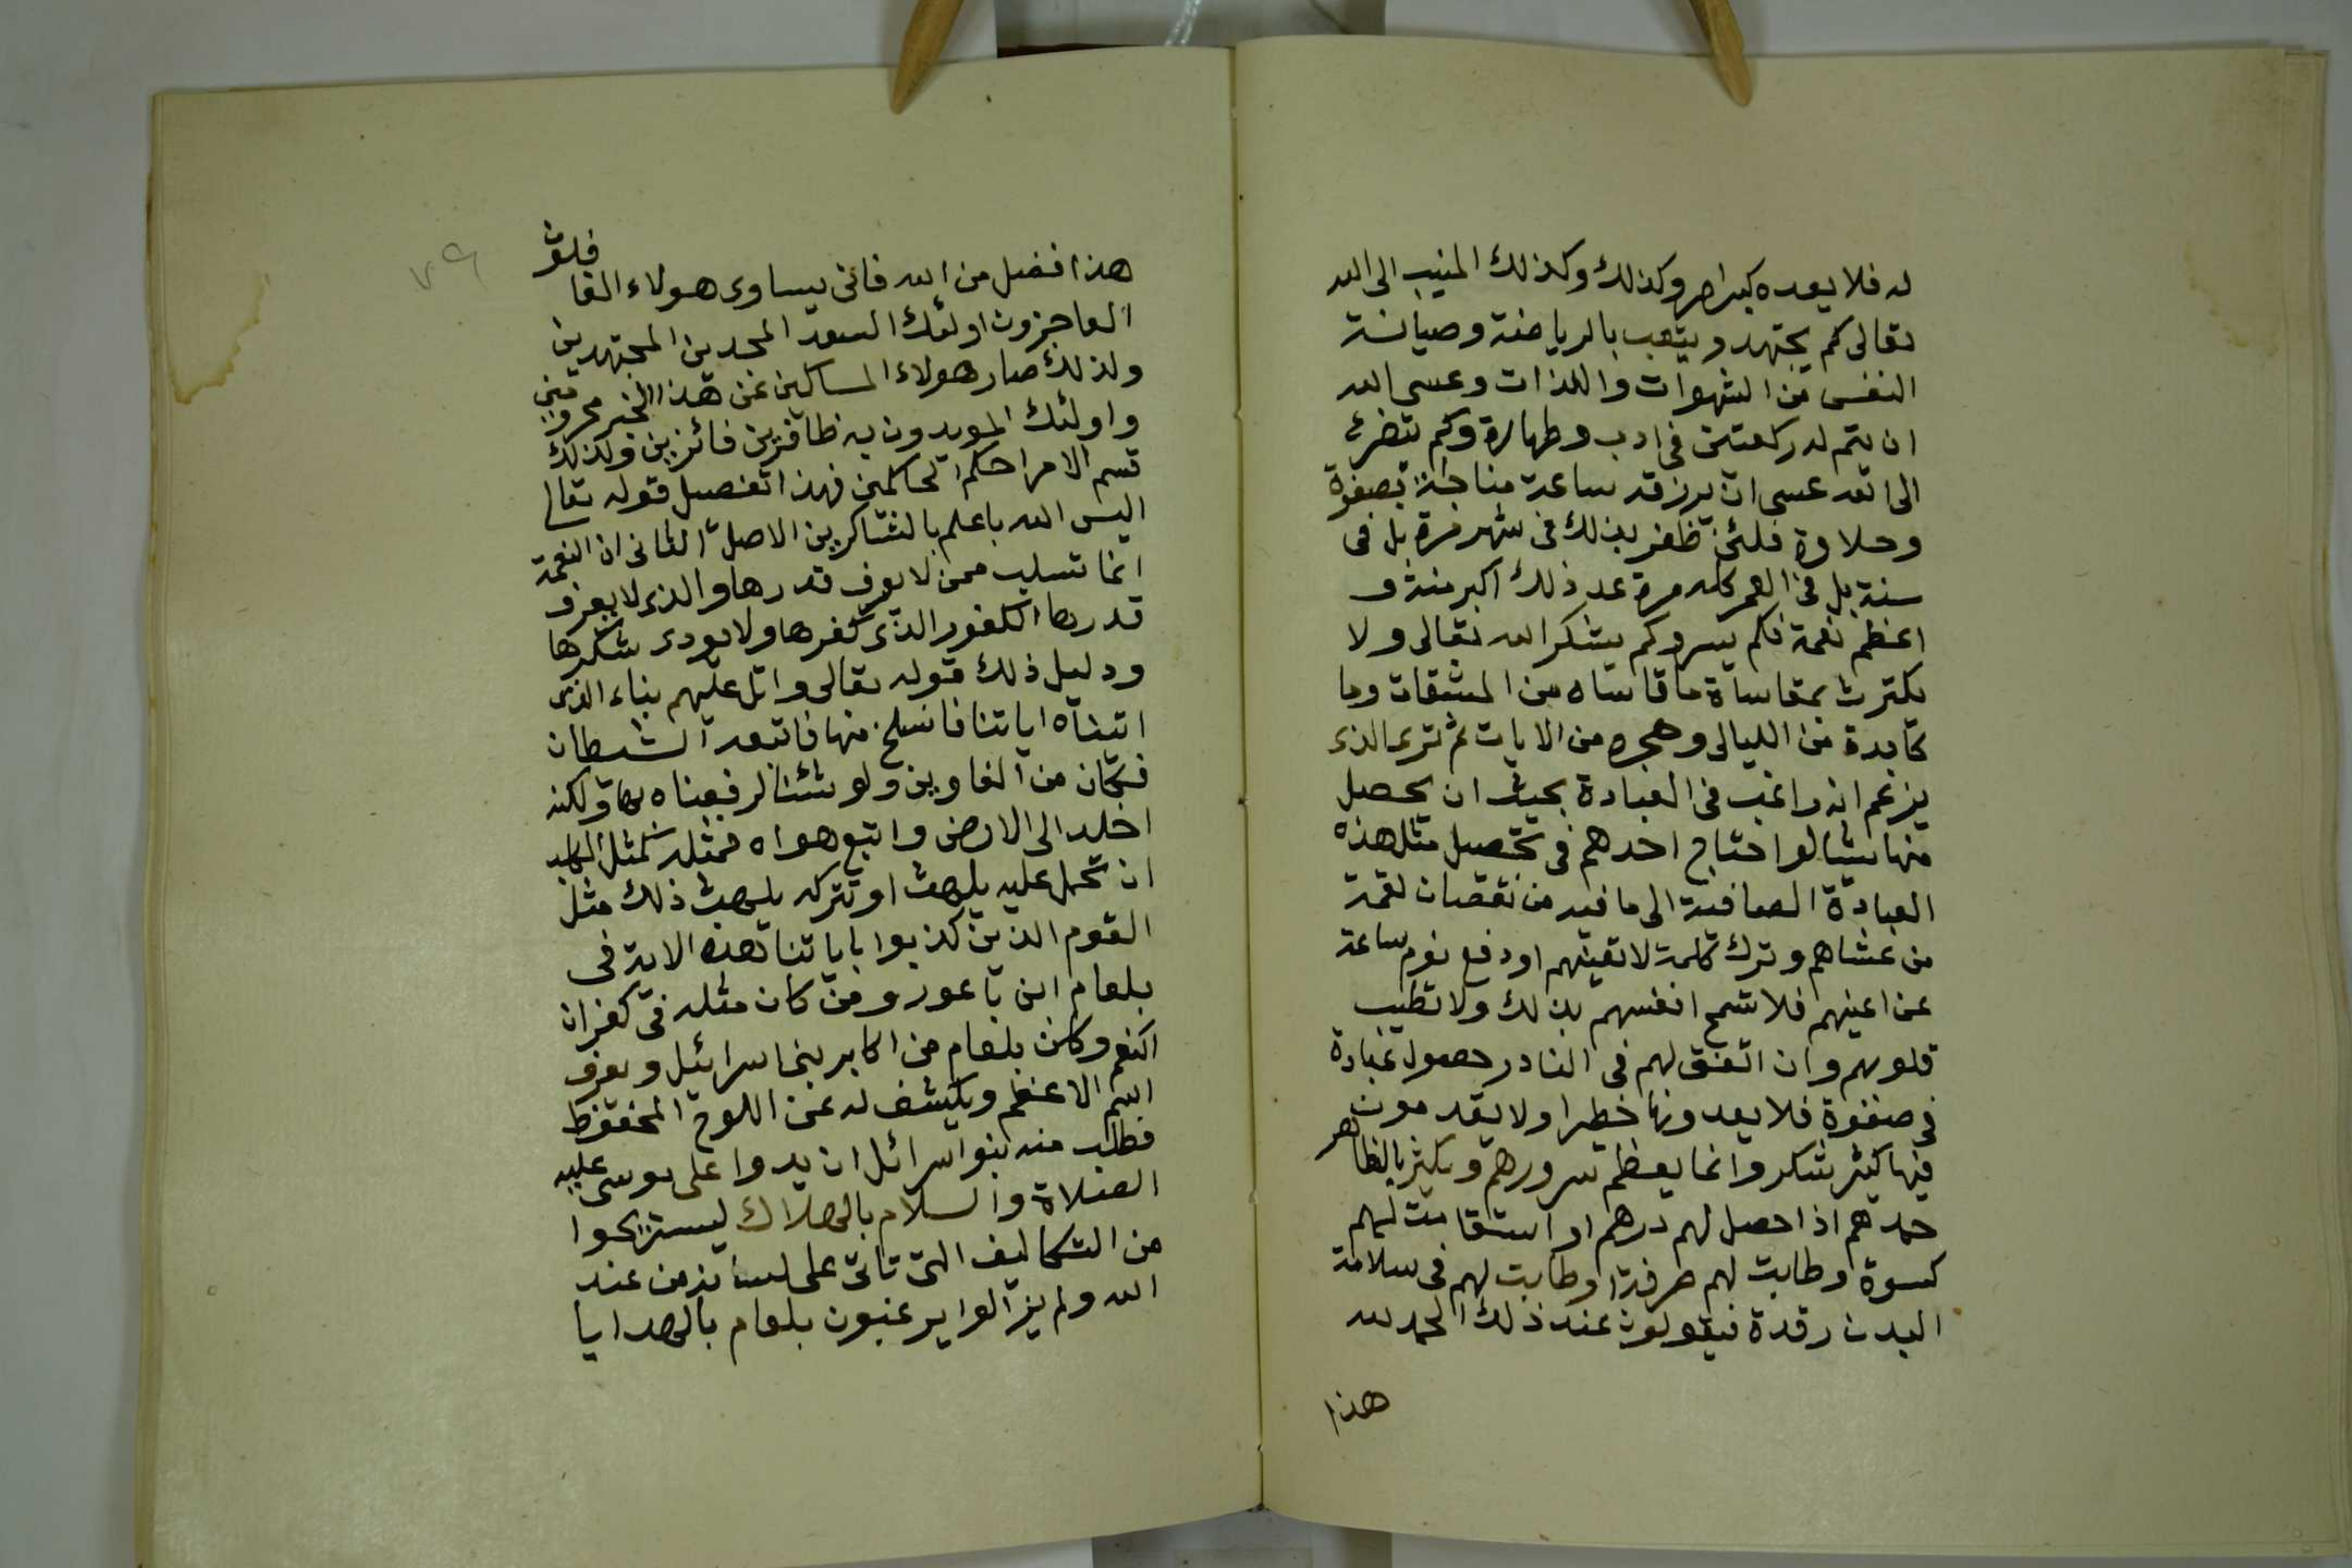 له فلا يعده كبير امر وكذلك وكذلك المنيب الى الله
تعالى كم يجتهد ويتعب بالرياضة وصيانة
النفس من الشهوات واللذات وعسى الله
ان يتم له ركعتين فى ادب وطهارة وكم يتضرع
الى الله عسى ان يرزقه ساعة مناجاة بصفوة
وحلاوة فلئن ظفر بذلك فى شهر مرة بل فى
سنة بل فى العمر كله مرة عد ذلك اكبر منة و
اعظم نعمة فكم يسر وكم يشكر الله تعالى ولا
يكترث بمقاساة ما قاساه من المشقات وما
كابدة من الليالى وهجره من الايات ثم ترى الذى
يزعم انه راغب فى العبادة بحيث ان يحصل
منها شيا لو احتاج احدهم فى تحصيل مثل هذه
العبادة الصافية الى ما فيه من نقصان لقمة
من عشاهم وترك كلمة لا تعينهم او دفع نوم ساعة
عن اعينهم فلا تسمح انفسهم بذلك ولا تطيب
قلوبهم وان اتفق لهم فى النادر حصول عبادة
فى صفوة فلا يعدونها خطيرا ولا يقدمون
فيها كثير شكر وانما يعظم سرورهم ويكثر بالظاهر
حمدهم اذا حصل لهم درهم او استقامت لهم
كسوة وطابت لهم مرقة او طابت لهم فى سلامة
البدن رقدة فيقولون عند ذلك الحمد لله
هذا
٧٩
هذا افضل من الله فانى يساوى هولاء الغافلون
العاجزون اولئك السعد المجدين المجتهدين
ولذلك صار هولاء المساكين عن هذا الخير محرومين
واولئك المويدون به ظافرين فائزين وكذلك
قسم الامر احكم الحاكمين فهذا تفصيل قوله تعالى
اليس الله باعلم بالشاكرين الاصل الثانى ان النعمة
انما تسلب ممن لا يعرف قدرها والذى لا يعرف
قدرها الكفور الذى كفرها ولا يودى شكرها
ودليل ذلك قوله تعالى واتل عليهم نباء الذى
اتيناه اياتنا فانسلخ منها فاتبعه الشيطان
فكان من الغاوين ولو شئنا لرفعناه بها ولكنه
اخلد الى الارض واتبع هواه فمثله كمثل الكلب
ان تحمل عليه يلهث او تتركه يلهث ذلك مثل
القوم الذين كذبوا باياتنا هذه الاية فى
بلعام ابن باعور ومن كان مثله فى كفران
النعم وكان بلعام من اكابر بنى اسرائيل ويعرف
اسم الاعظم ويكشف له عن اللوح المحفوظ
فطلب منه بنوا اسرائل ان يدوا على موسى عليه
الصلاة والسلام بالهلاك ليستريحوا
من التكاليف التى تاتى على لسانه من عند
الله ولم يزالوا يرغبون بلعام بالهدايا